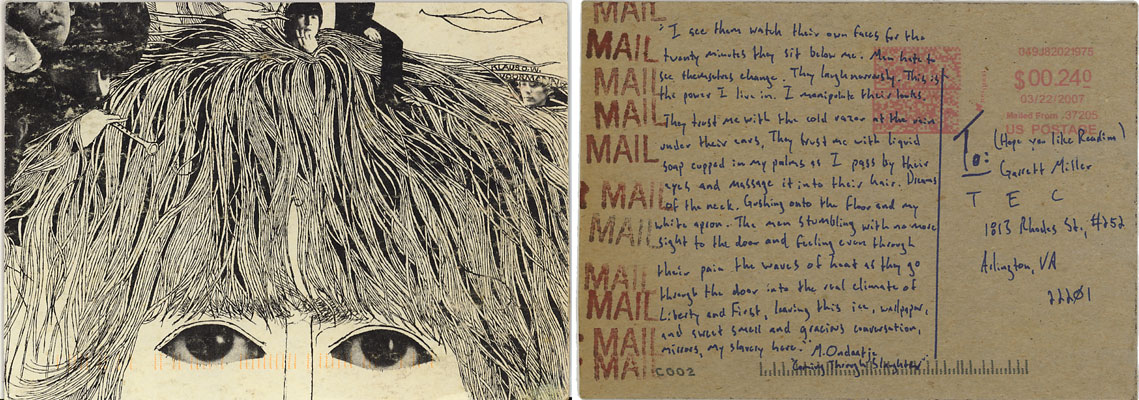 KLAUS O.W.
VOORMANN
MAIL
MAIL
MAIL
MAIL
MAIL
MAIL
MAIL
MAIL
MAIL
MAIL
MAIL
"I see them watch their own faces for the
twenty minutes they sit below me. Men hate to
see themselves change. They laugh nervously. This is
the power I live in. I manipulate their looks.
They trust me with the cold razor at the vein
under their ears, They trust me with liquid
soap cupped in my palms as I pass by their
eyes and massage it into their hair. Dreams
of the neck. Gushing onto the floor and my
white apron. The men stumbling with no more
sight to the door and feeling even through
their pain the waves of heat as they go
through the door into the real climate of
Liberty and First, leaving this ice, wallpaper,
and sweet smell and gracious conversation,
mirrors, my slavery here." M. Ondaatje
"Coming Through Slaughter"
C002
049J82021975
$00.240
03/22/2007
Mailed From 37205
US POSTAGE
To:
(Hope you like Reading)
Garrett Miller
T E C
1813 Rhodes St., #252
Arlington, VA
22201